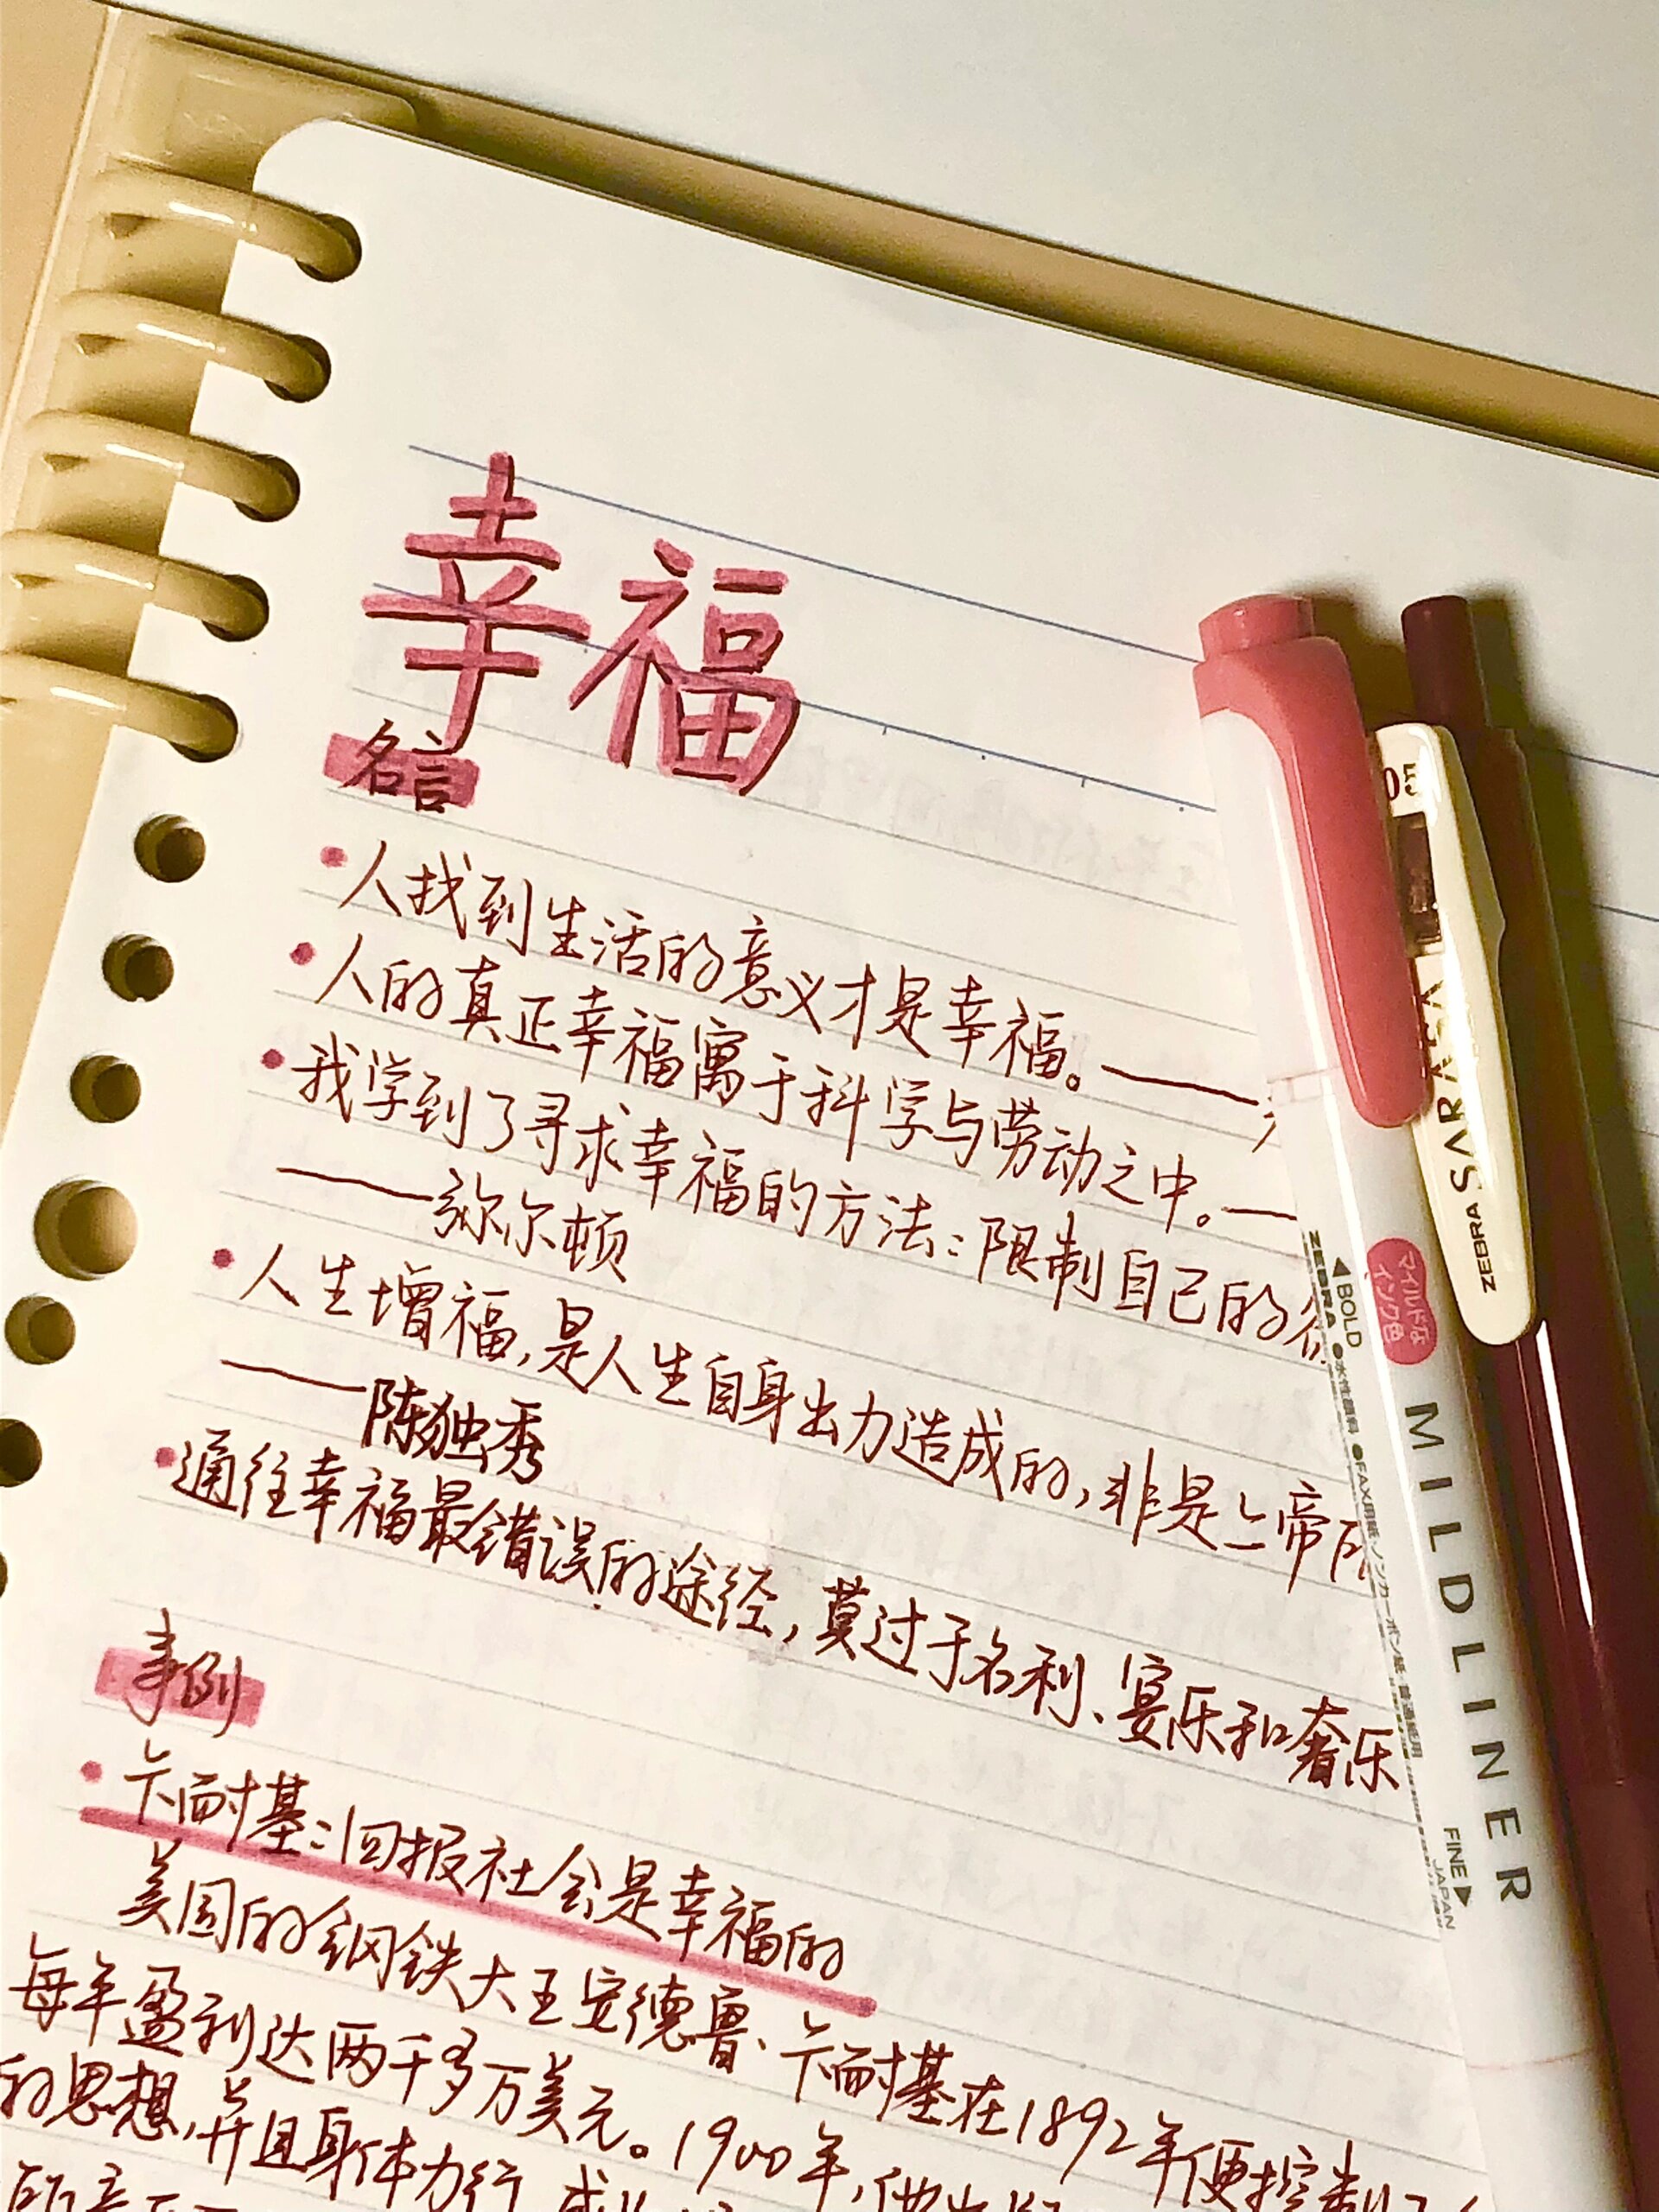 幸福
名言
人找到生活的意义才是幸福。——
人的真正幸福寓于科学与劳动之中。——
我学到了寻求幸福的方法：限制自己的
——弥尔顿
人生增福，是人生自身出力造成的，非是上帝
——陈独秀
通往幸福最错误的途径，莫过于名利、宴乐和奢乐
事例
卡耐基：回报社会是幸福的
美国的钢铁大王安德鲁、卡耐基在1892年便控制
每年盈利达两千多万美元。1900年，他
的思想，并且身体力行
05
SARASA
ZEBRA
ZEBRA
マイルドな
インク色
◀BOLD
●水性顔料 ●FAX用紙・ノンカーボン紙・普通紙用
MILDLINER
FINE▶
JAPAN